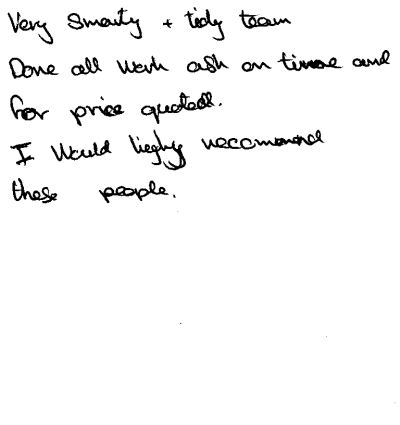 Very Smarty + tidy team
Done all work ash on time and
for price quoted.
I would highly recommend
these people.